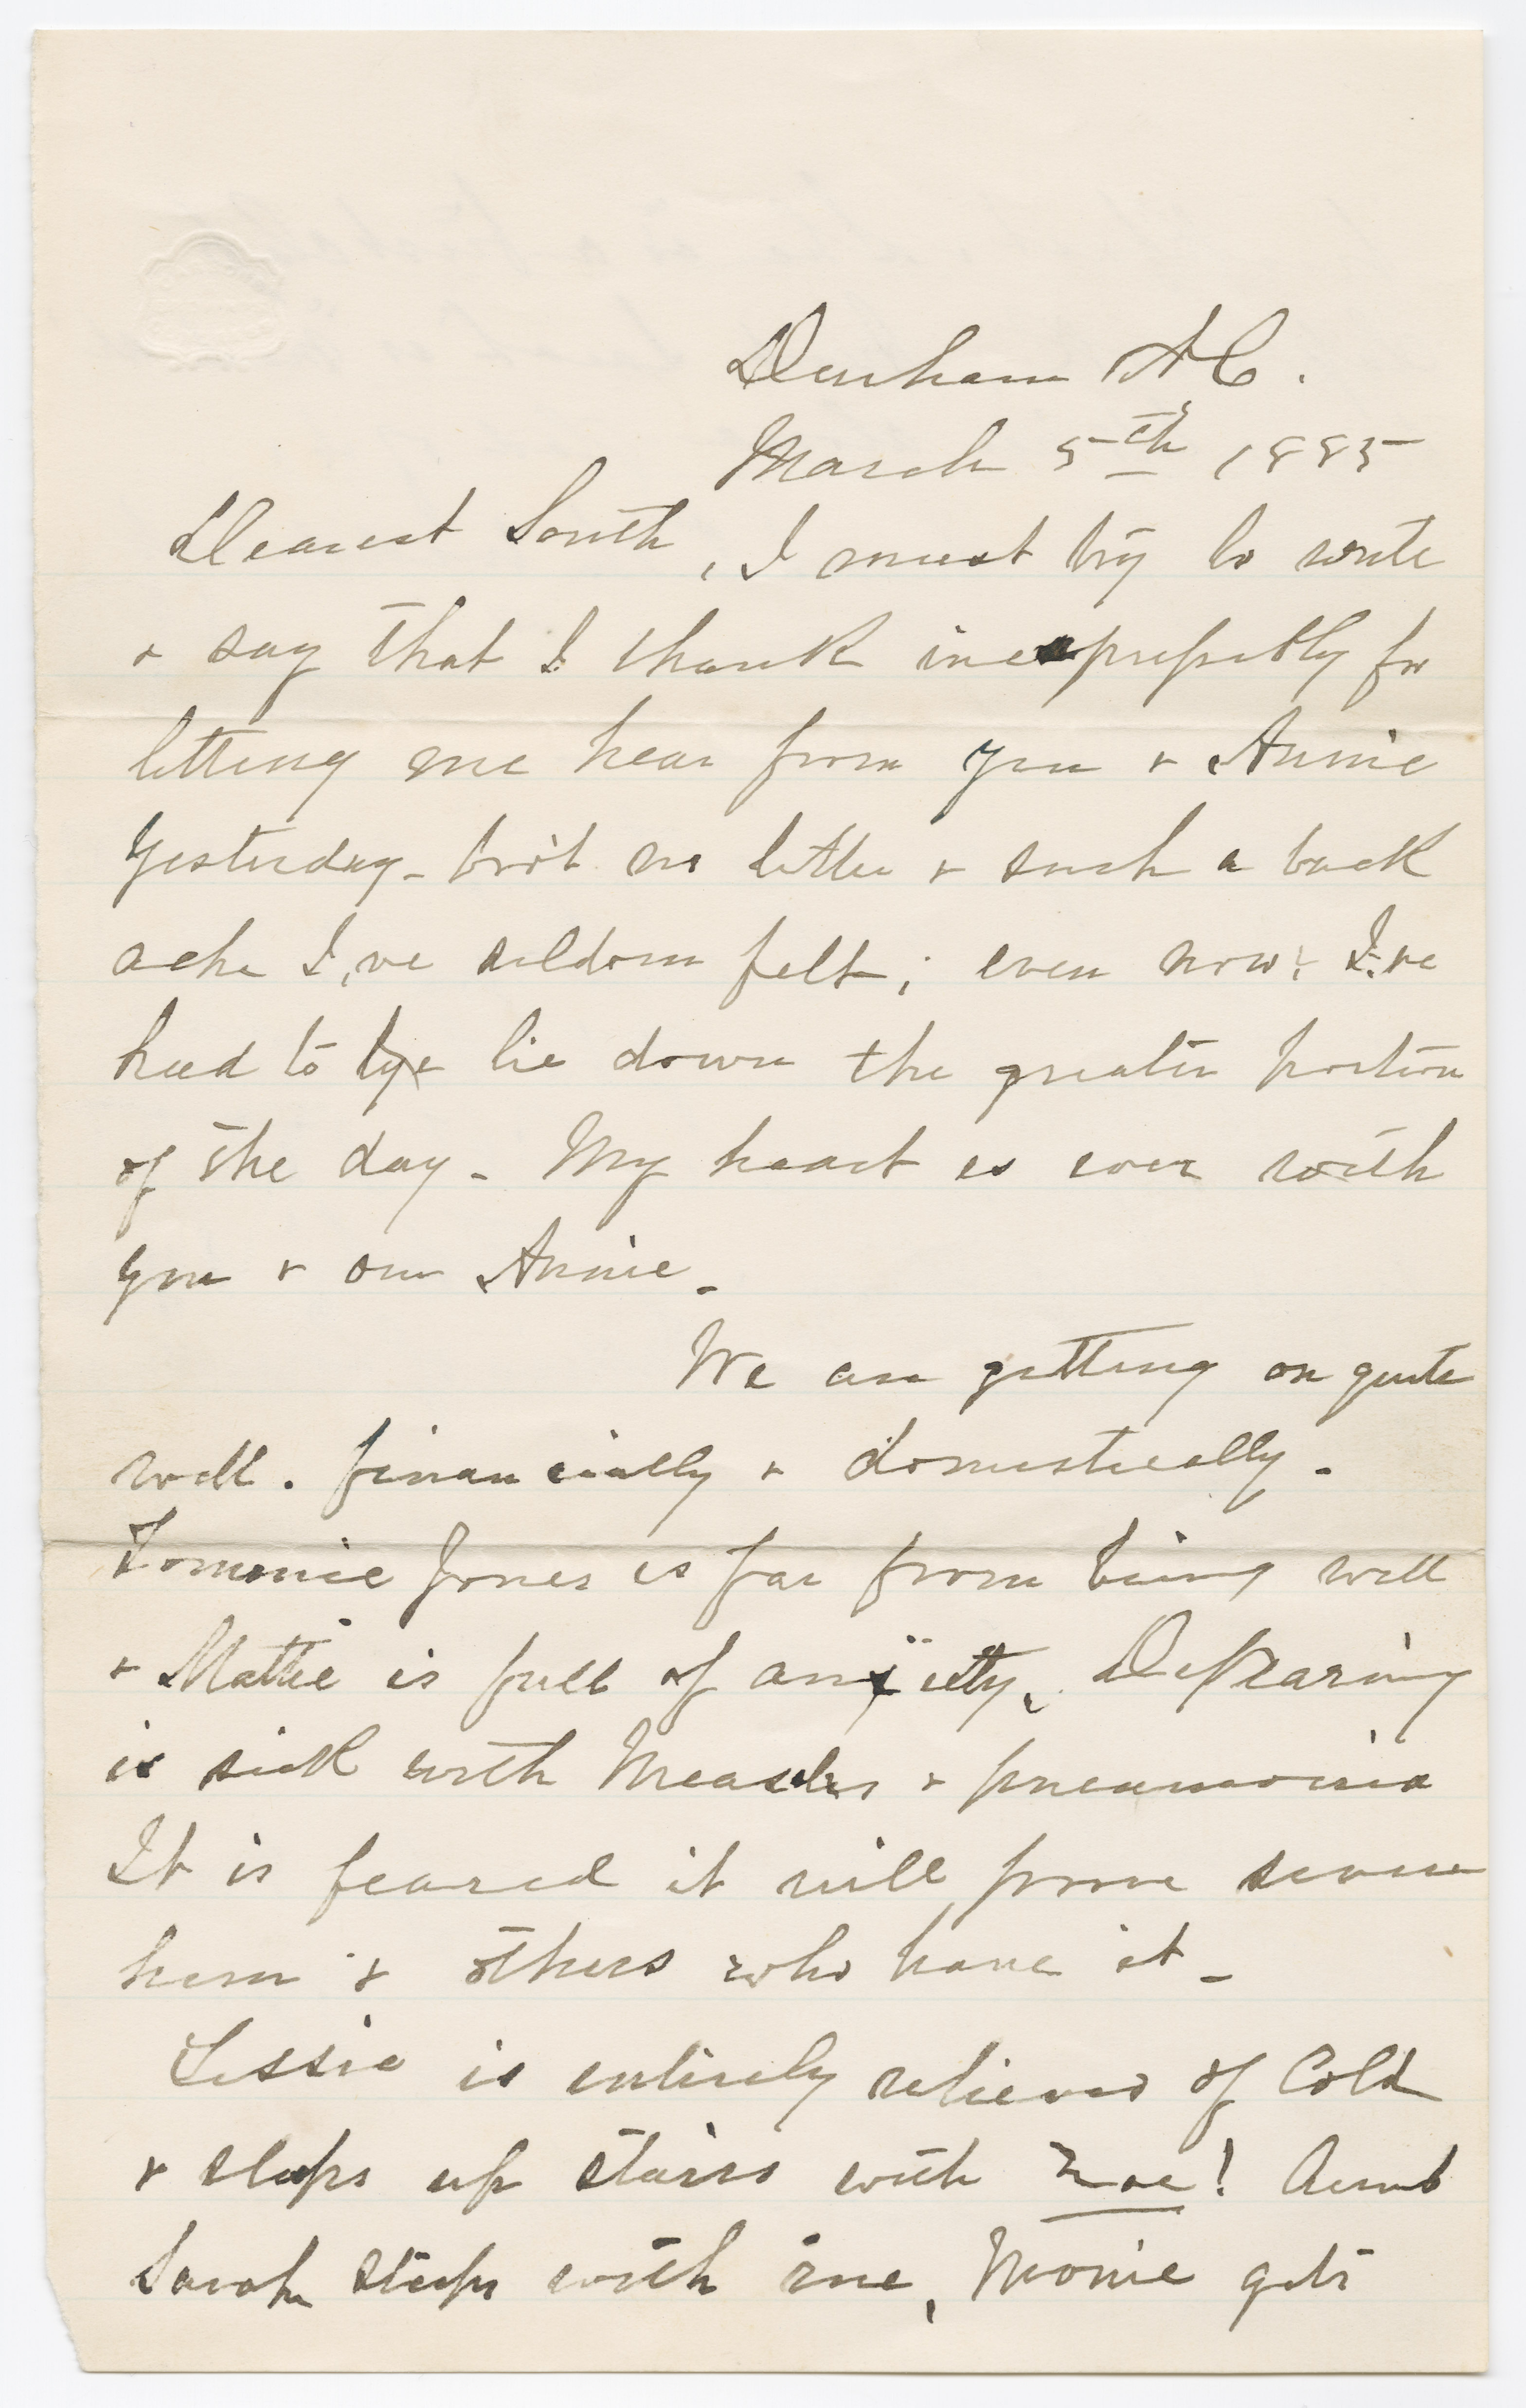 Durham N.C.
March 5th 1885
Dearest South, I must try to write
& say that I thank inexpressibly for
letting me hear from you & Annie
Yesterday - bro't no letter & such a back
ache I,ve seldom felt; even now I've
had to lye lie down the greater portion
of the day - My heart is ever with
you & our Annie -
We are getting on quite
well. financially & domestically -
Tommie Jones is far from being well
& Mattie is full of anxiety,
is sick with Measles & pneumonia
It is feared it will prove severe
hern & others who have it -
Lessie is entirely relieved of Cold
& sleeps up stairs with Zoe! Aunt
Sarah sleeps with me, Monie gets